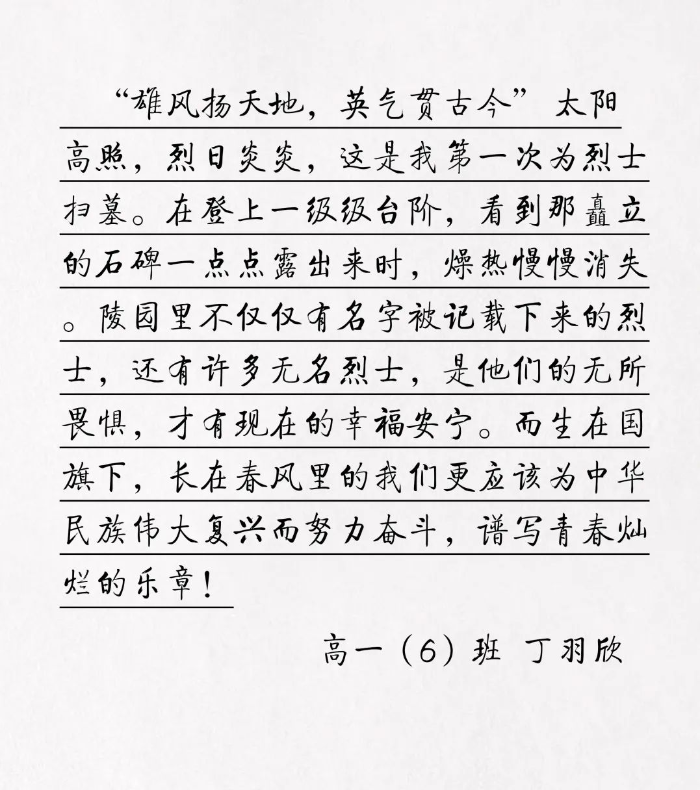 “雄风扬天地，英气贯古今” 太阳
高照，烈日炎炎，这是我第一次为烈士
扫墓。在登上一级级台阶，看到那矗立
的石碑一点点露出来时，燥热慢慢消失
。陵园里不仅仅有名字被记载下来的烈
士，还有许多无名烈士，是他们的无所
畏惧，才有现在的幸福安宁。而生在国
旗下，长在春风里的我们更应该为中华
民族伟大复兴而努力奋斗，谱写青春灿
烂的乐章！
高一（6）班 丁羽欣